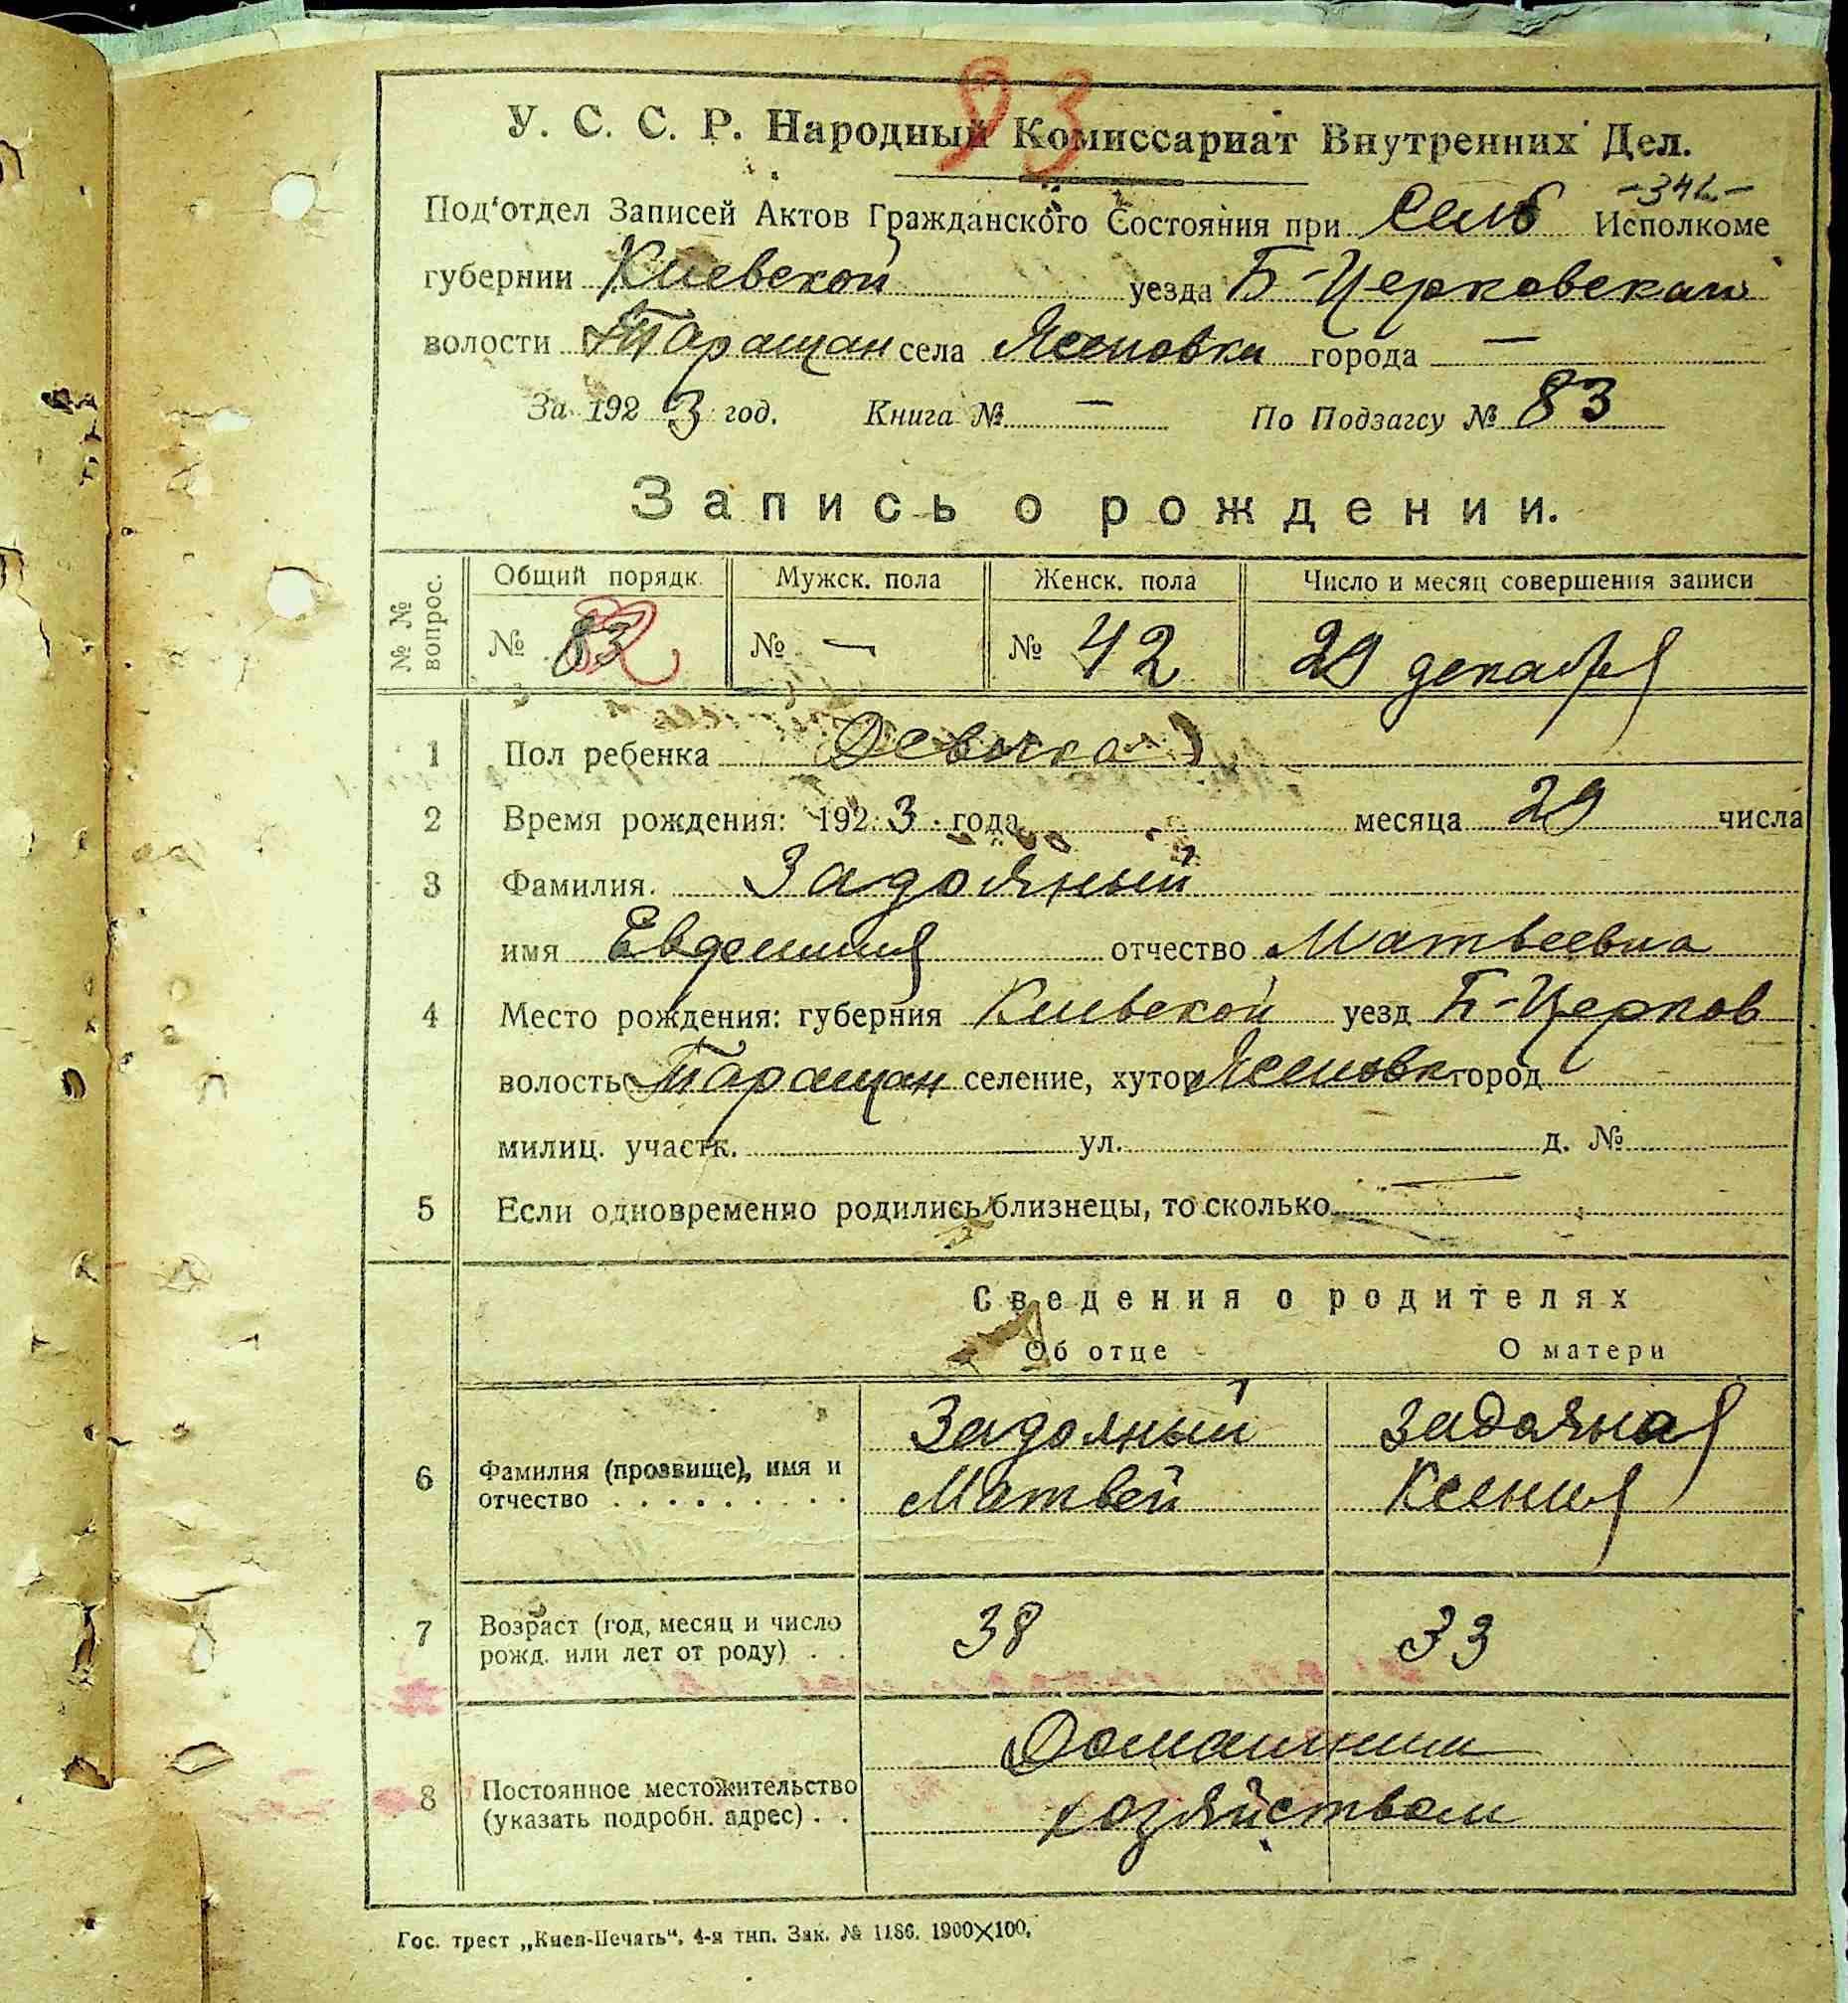 93
У. С. С. Р. Народный Комиссариат Внутренних Дел.
-342-
Под'отдел Записей Актов Гражданского Состояния при Сель Исполкоме
губернии Киевской уезда Б-Церковской
волости Таращан села Ясеновки города —
За 1923 год. Книга № — По Подзагсу № 83
Запись о рождении.
№ № вопрос. Общий порядк. Мужск. пола Женск. пола Число и месяц совершения записи
№ 83 № — № 42 29 декабря
1 Пол ребенка Девочка
2 Время рождения: 1923 года месяца 29 числа
3 Фамилия. Задояный
имя отчество Матвеевна
4 Место рождения: губерния Киевской уезд Б-Церков
волость Таращан селение, хутор Ясеновк город
милиц. участк. ул. д. №
5 Если одновременно родились близнецы, то сколько —
Сведения о родителях
Об отце О матери
Задояный Задояная
6 Фамилия (прозвище), имя и отчество . . . . . . . . . . Матвей Ксения
7 Возраст (год, месяц и число рожд. или лет от роду) . . 38 33
Домашним
8 Постоянное местожительство (указать подробн. адрес) . . хозяйством
Гос. трест „Киев-Печать“. 4-я тип. Зак. № 1186. 1900×100.